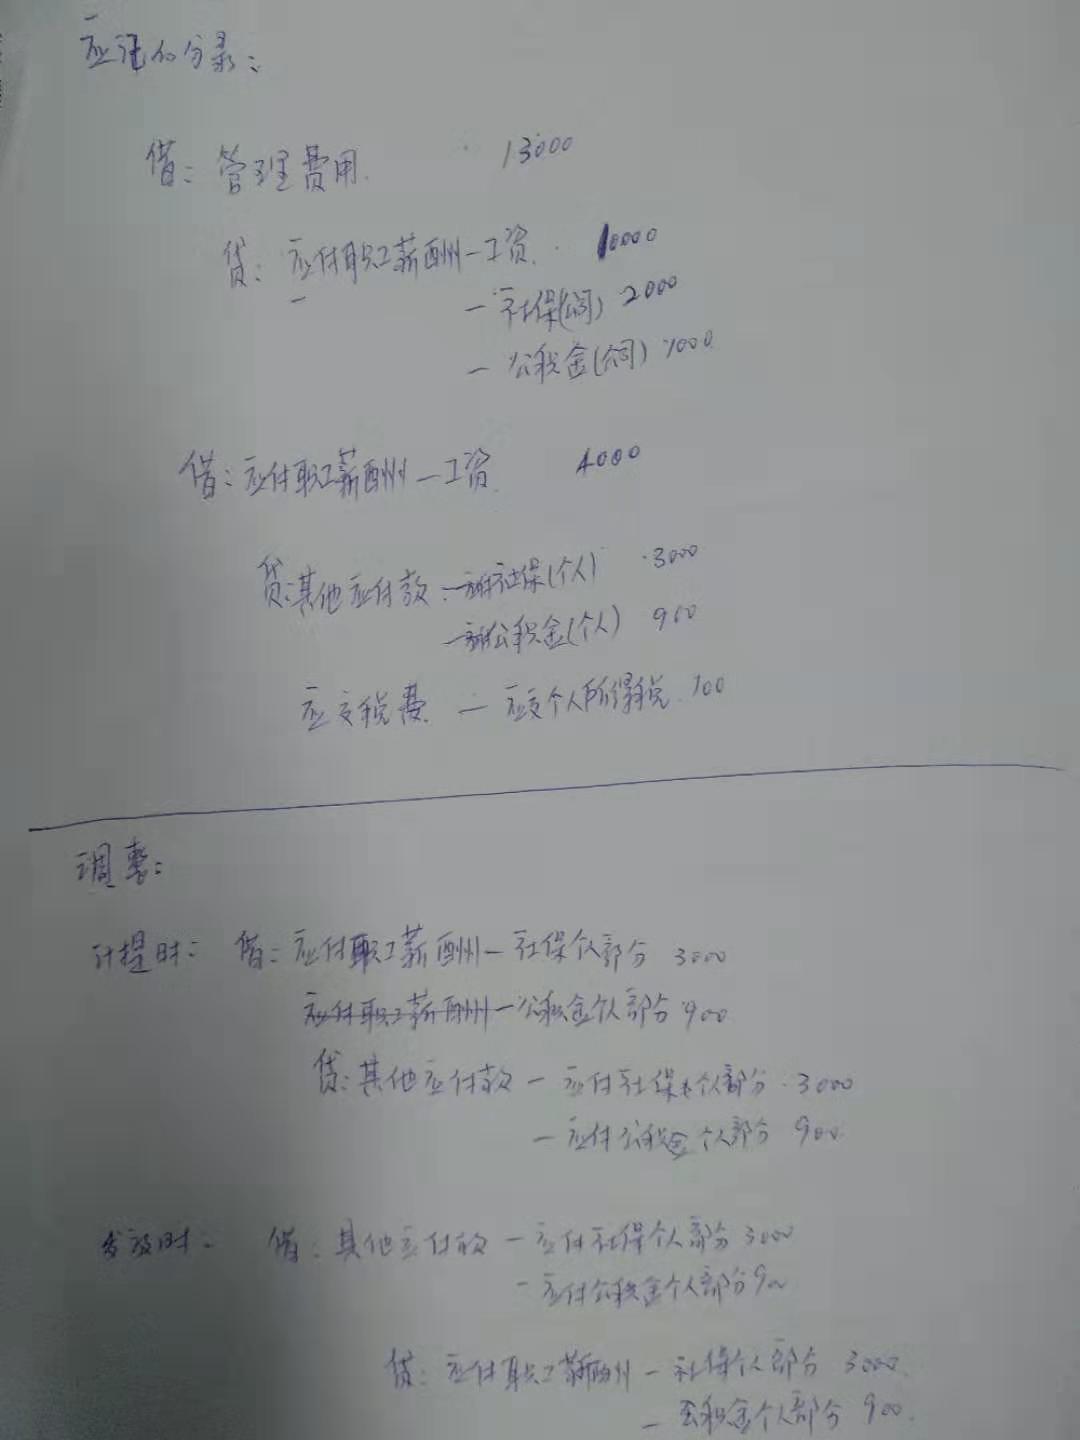 应记的分录：
借：管理费用 13000
贷：应付职工薪酬—工资 10000
—社保(公司) 2000
—公积金(公司) 1000
借：应付职工薪酬—工资 4000
贷：其他应付款—社保(个人) 3000
—公积金(个人) 900
应交税费—应交个人所得税 100
调整：
计提时：借：应付职工薪酬—社保个人部分 3000
应付职工薪酬—公积金个人部分 900
贷：其他应付款—应付社保个人部分 3000
—应付公积金个人部分 900
发放时：借：其他应付款—应付社保个人部分 3000
—应付公积金个人部分 900
贷：应付职工薪酬—社保个人部分 3000
—公积金个人部分 900